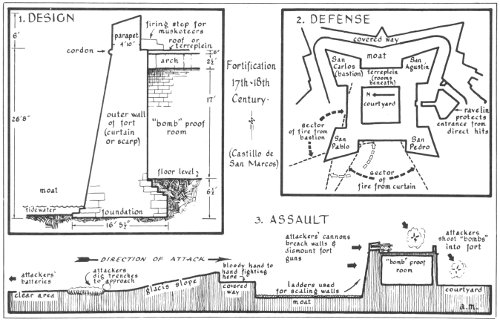 1. DESIGN
6'
parapet
4'10"
firing step for
musketeers
roof or
terreplein
cordon
arch
2½'
26'8'
outer wall
of fort
(curtain
or scarp)
"bomb" proof
room
17'
floor level
moat
tidewater
6½'
foundation
16' 5½"
Fortification
17th-18th
Century-
(Castillo de
San Marcos)
2. DEFENSE
covered way
moat
San
Carlos
(bastion)
San
Agustin
terreplein
(rooms
beneath)
N
courtyard
ravelin
protects
entrance from
direct hits
sector
of fire from
bastion
San
Pablo
San
Pedro
sector
of fire from curtain
3. ASSAULT
DIRECTION OF ATTACK
attackers'
batteries
clear area
attackers
dig trenches
to approach
glacis slope
bloody hand to
hand fighting
here
covered
way
attackers' cannons
breach walls &
dismount fort
guns
ladders used
for scaling walls
moat
"bomb" proof
room
attackers
shoot "bombs"
into fort
courtyard
a.m.